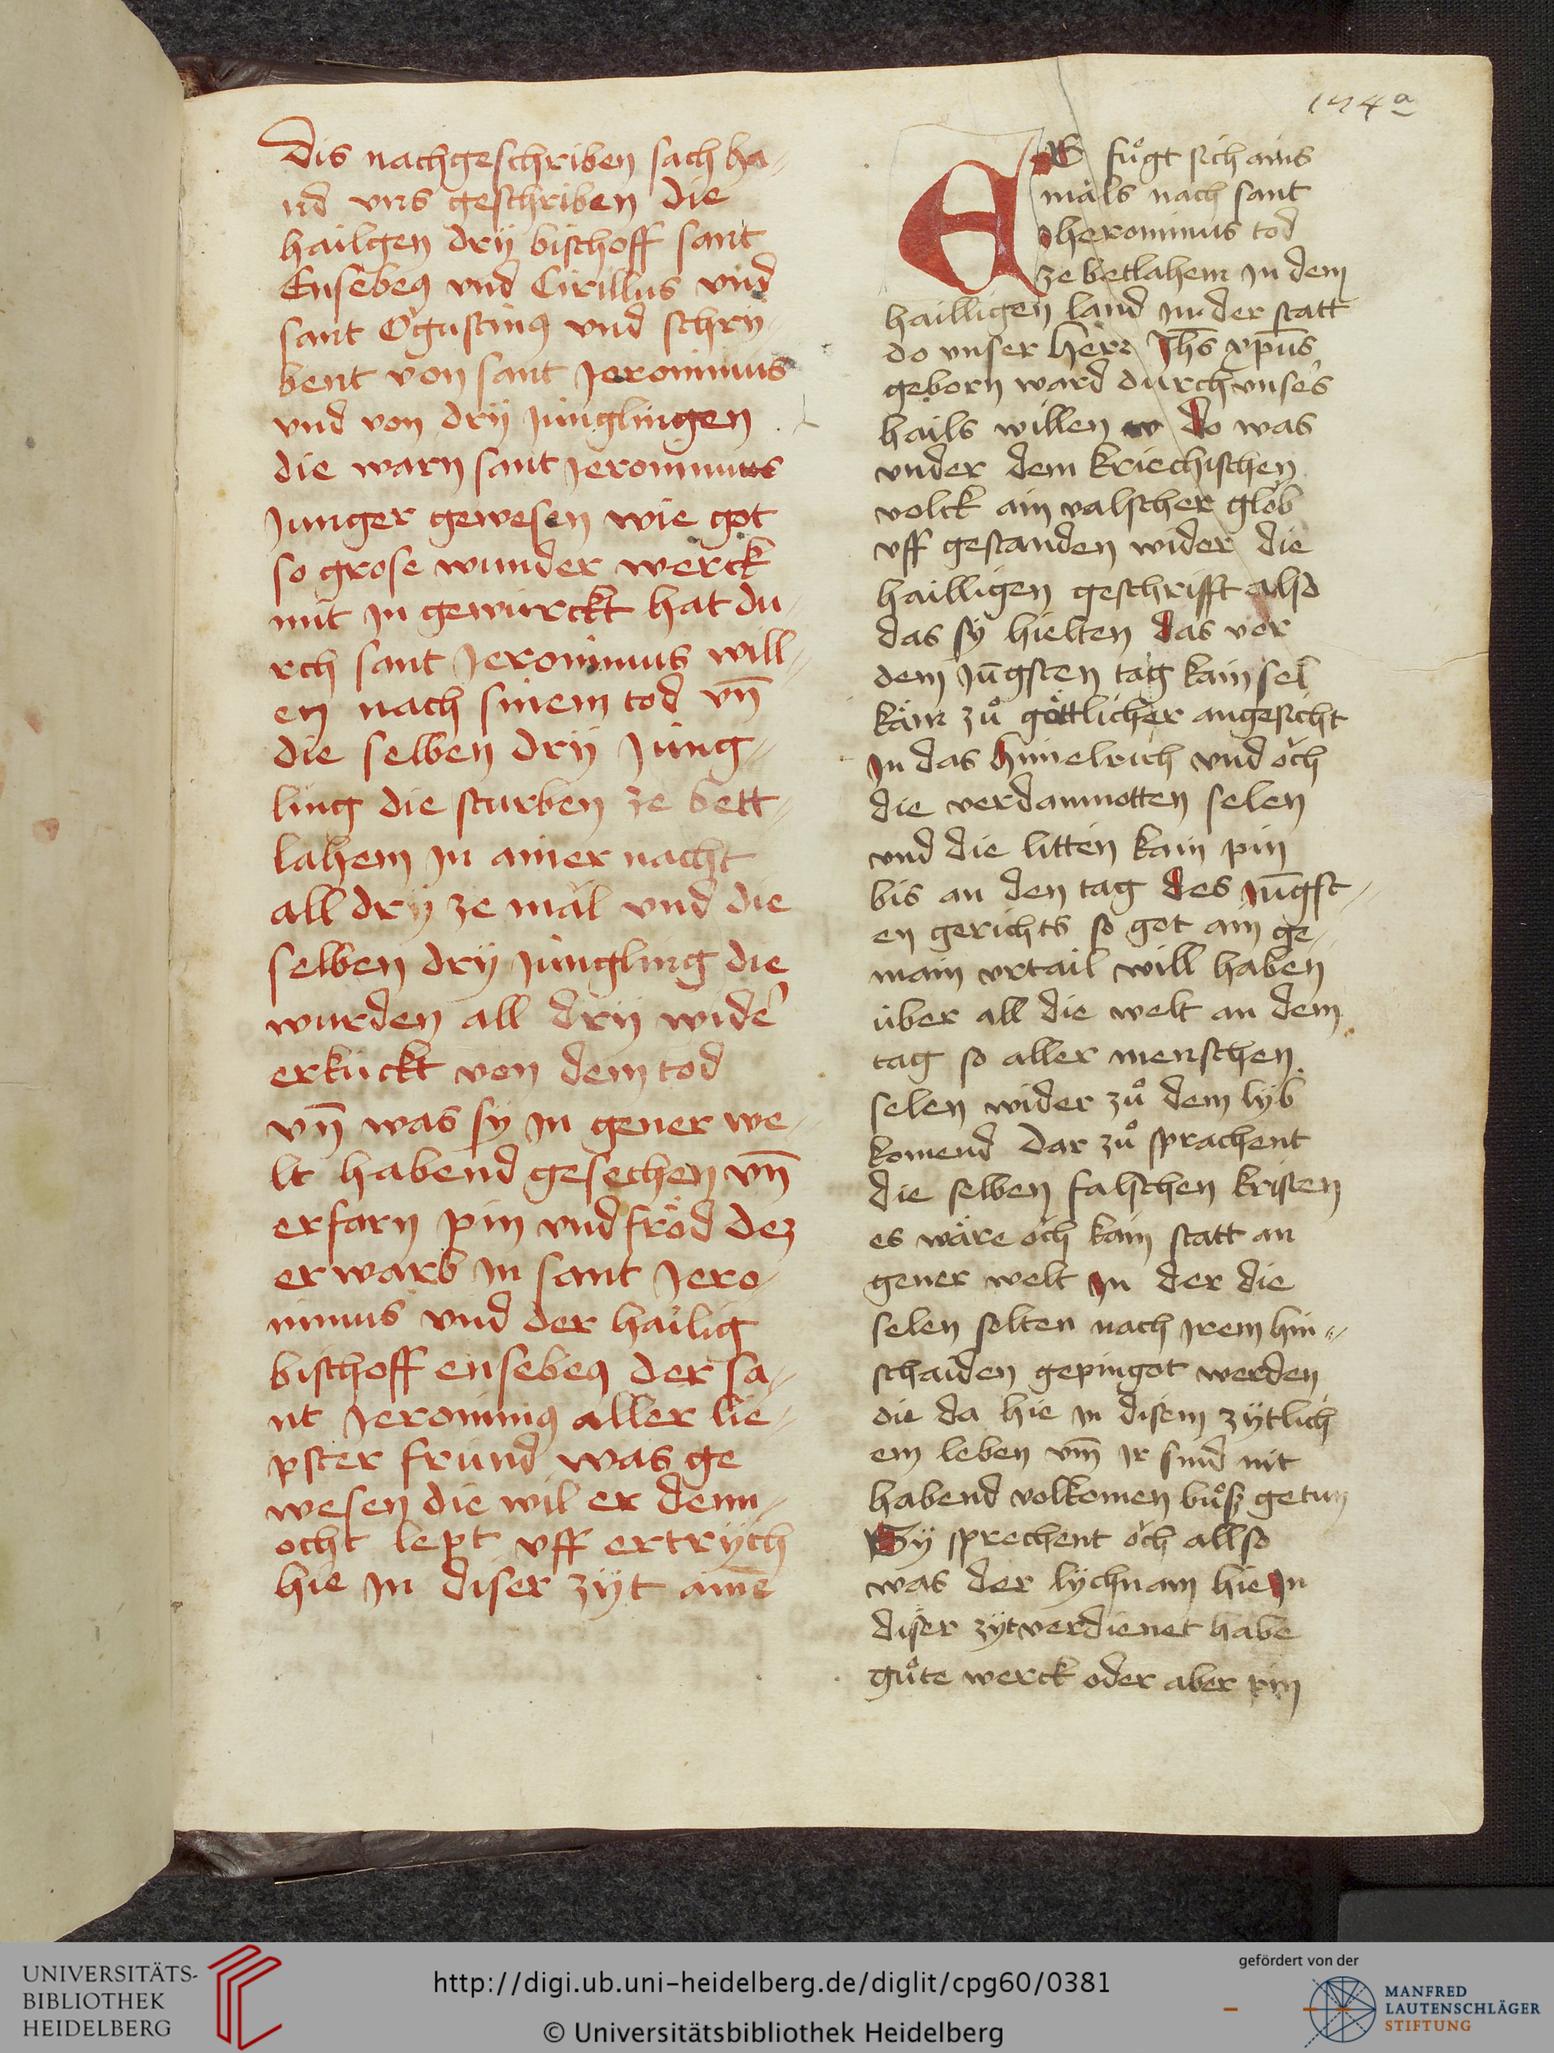 174a
Dis nachgeschriben sach ha-
nd vns geschriben die
hailgen drÿ bischoff sant
Eusebeꝯ vnd Cirillus vnd
sant Ogustinꝯ vnd schry-
bent von sant Jeronimus
vnd von drÿ Junglingen
die warn sant Jeronimus
Junger gewesen wie got
so grose wunder werck
mit In gewurckt hat du-
rch sant Jeronimus will-
en nach sinem tod vn̄
die selben drÿ Jung-
ling die sturben ze bett-
lahem In ainer nacht
all drÿ ze mäl vnd die
selben drÿ Jungling die
wurden all drÿ wider
erkückt von dem tod
vn̄ was sy In gener we-
lt habend gesechen vn̄
erfarn pin vnd fröd dez
erwarb In sant Jero-
nimus vnd der hailig
bischoff eusebeꝯ der sa-
nt Jeronimꝯ aller lie-
pster fründ was ge
wesen die wil er denn-
ocht lept vff ertrÿch
hie In diser zÿt amē
ES fuͦgt sich ains
mäls nach sant
Jheronimus tod
ze betlahem In dem
hailligen land In der statt
do vnser herr Jhs xp̄us
geborn ward durch vnsers
hails willen do was
vnder dem kriechischen
volck ain valscher glob
vff gestanden wider die
hailligen geschrifft also
das sÿ hielten das vor
dem Jūgsten tag kain sel
käm zuͦ göttlicher angesicht
In das himelrich vnd och
die verdamnotten selen
vnd die litten kain pin
bis an den tag des Jūgst-
en gerichts so got ain ge-
main vrtail will haben
über all die welt an dem
tag so aller menschen
selen wider zuͦ dem lÿb
komend dar zuͦ sprachent
die selben falschen kristen
es wäre och kain statt an
gener welt In der die
selen solten nach Irem hin-
schaiden gepingot werden
die da hie In disem zÿtlich
em leben vm̄ Ir sünd nit
habend volkomen buͦß getun
Sÿ sprechent och allso
was der lÿchnam hie In
diser zÿt verdienet habe
guͦte werck oder aber pin
UNIVERSITÄTS-
BIBLIOTHEK
HEIDELBERG
http://digi.ub.uni-heidelberg.de/diglit/cpg60/0381
© Universitätsbibliothek Heidelberg
gefördert von der
MANFRED
LAUTENSCHLÄGER
STIFTUNG